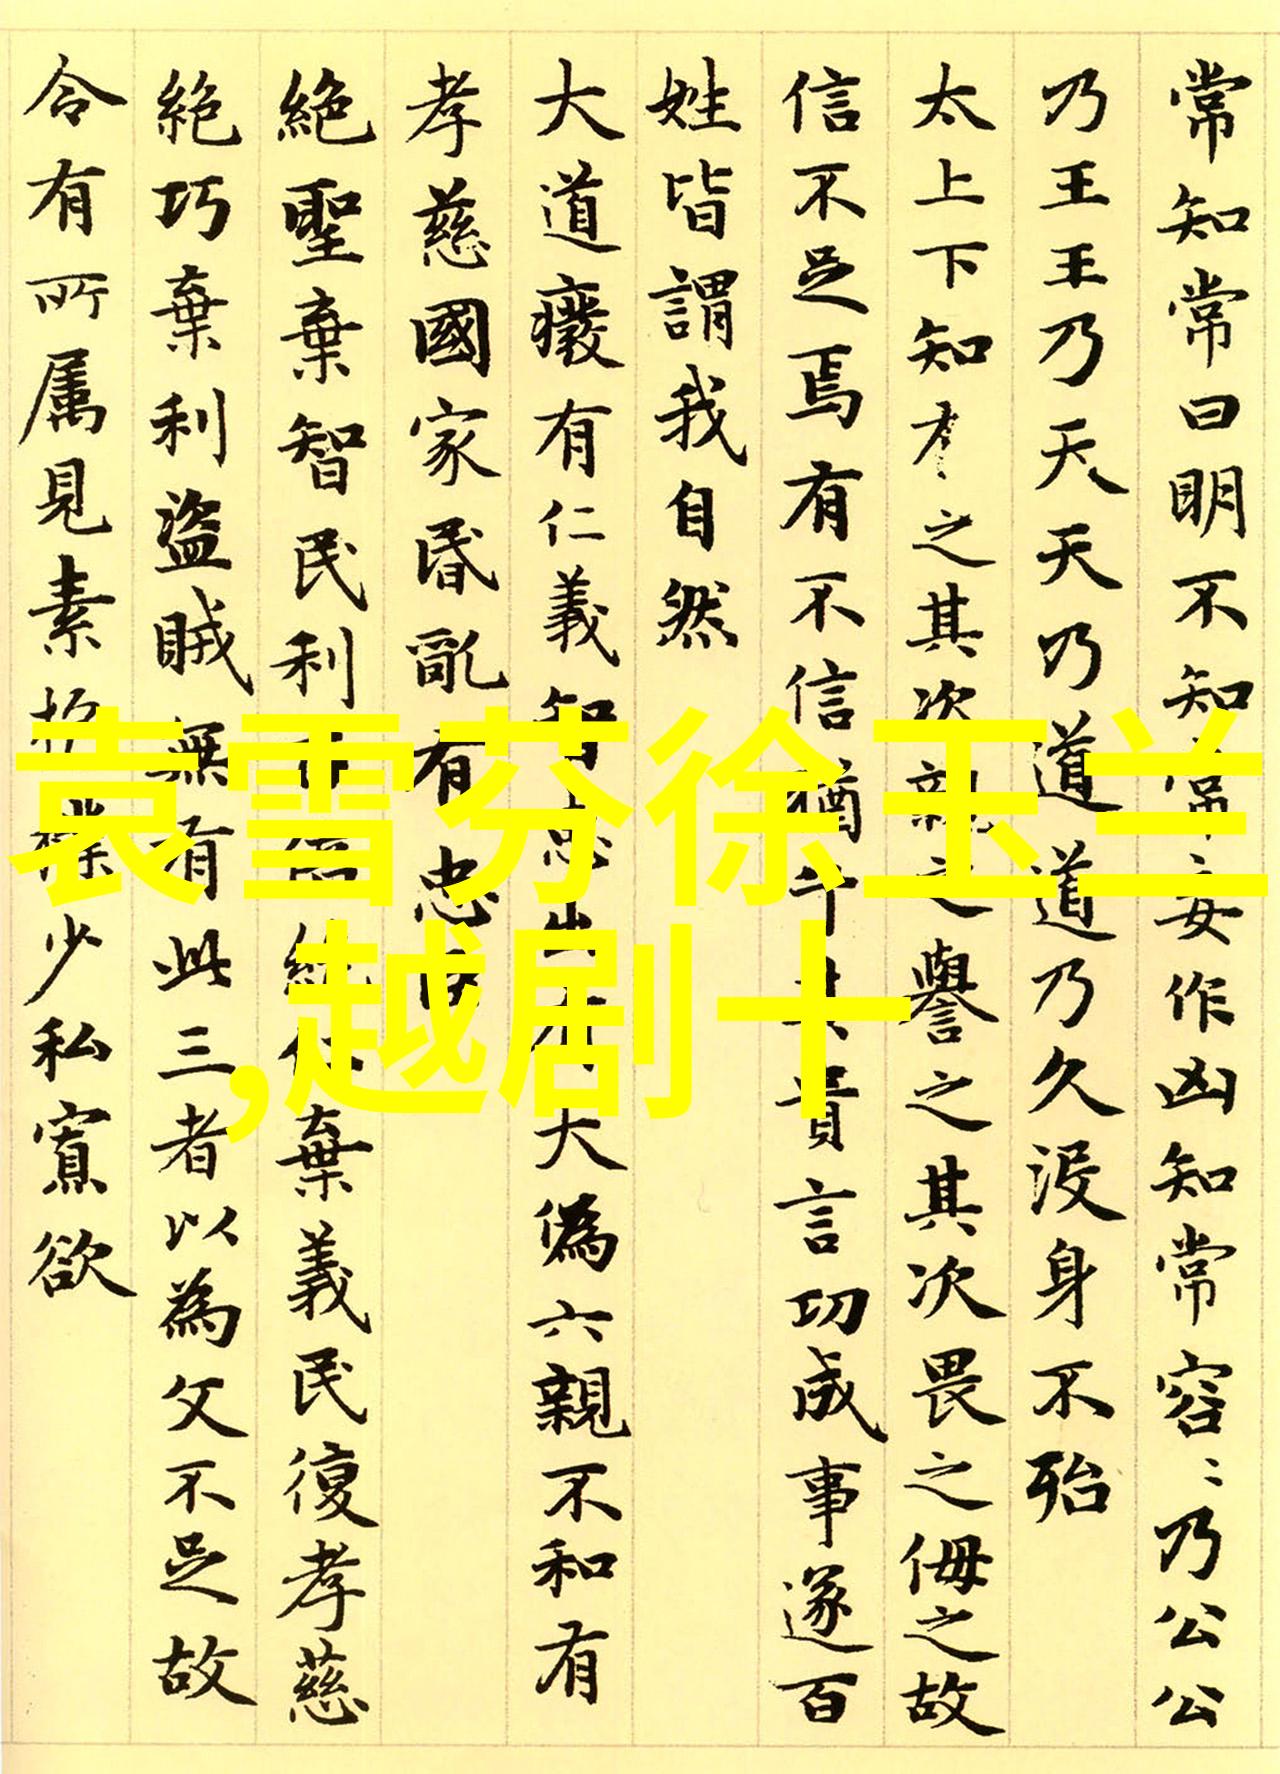 常知常曰明不知知常妄作凶知常容〻乃公公
乃王王乃天天乃道道乃久没身不殆
太上下知有之其次親之譽之其次畏之侮之故
信不足焉有不信猶其貴言功成事遂百
姓皆謂我自然
大道癈有仁義智惠出有大偽六親不和有
孝慈國家昏亂有忠臣
絶聖棄智民利百倍絶仁棄義民復孝慈
絶巧棄利盗賊無有此三者以為文不足故
令有所属見素抱樸少私寡欲
袁雪芬徐玉兰
,越剧十